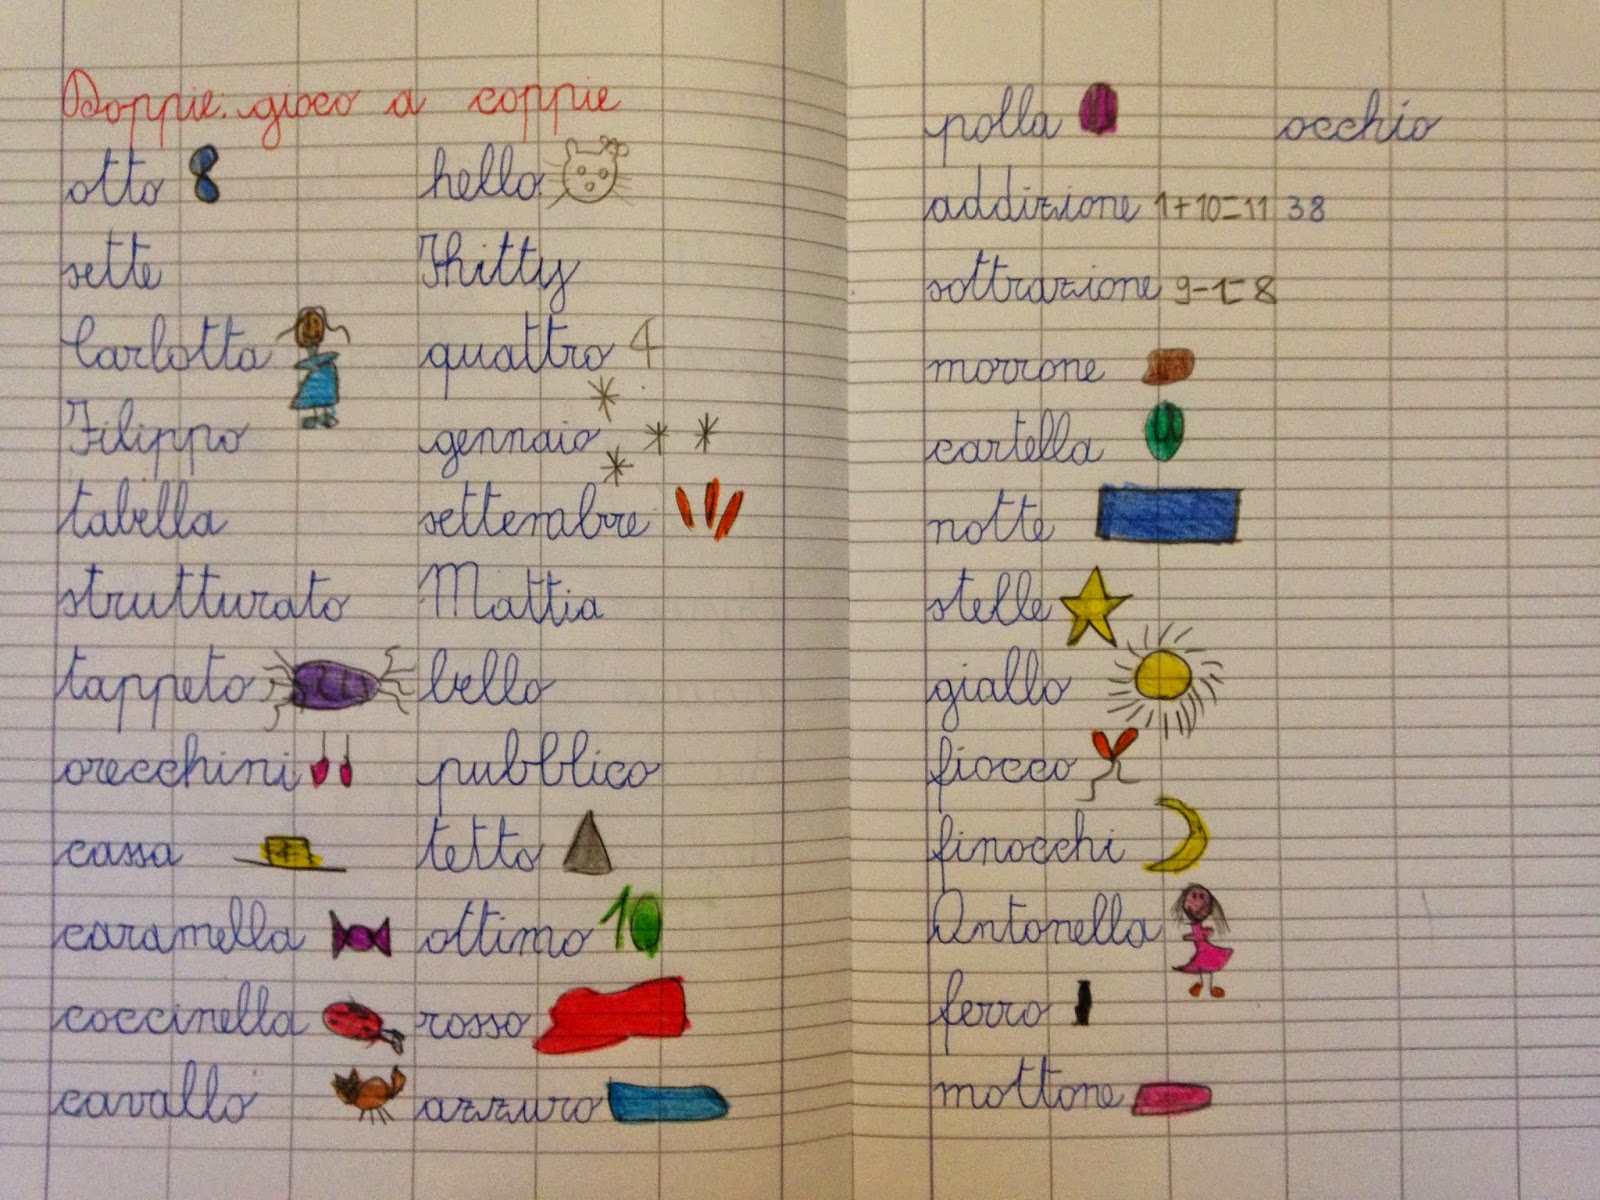 Doppie: gioco a coppie
otto 8 hello
sette Khitty
Carlotta quattro 4
Filippo gennaio
tabella settembre
strutturato Mattia
tappeto bello
orecchini pubblico
cassa tetto
caramella ottimo 10
coccinella rosso
cavallo azzuro
polla occhio
addizione 1+10=11 38
sottrazione 9-1=8
morrone
cartella
notte
stelle
giallo
fiocco
finocchi
Antonella
ferro
mottone